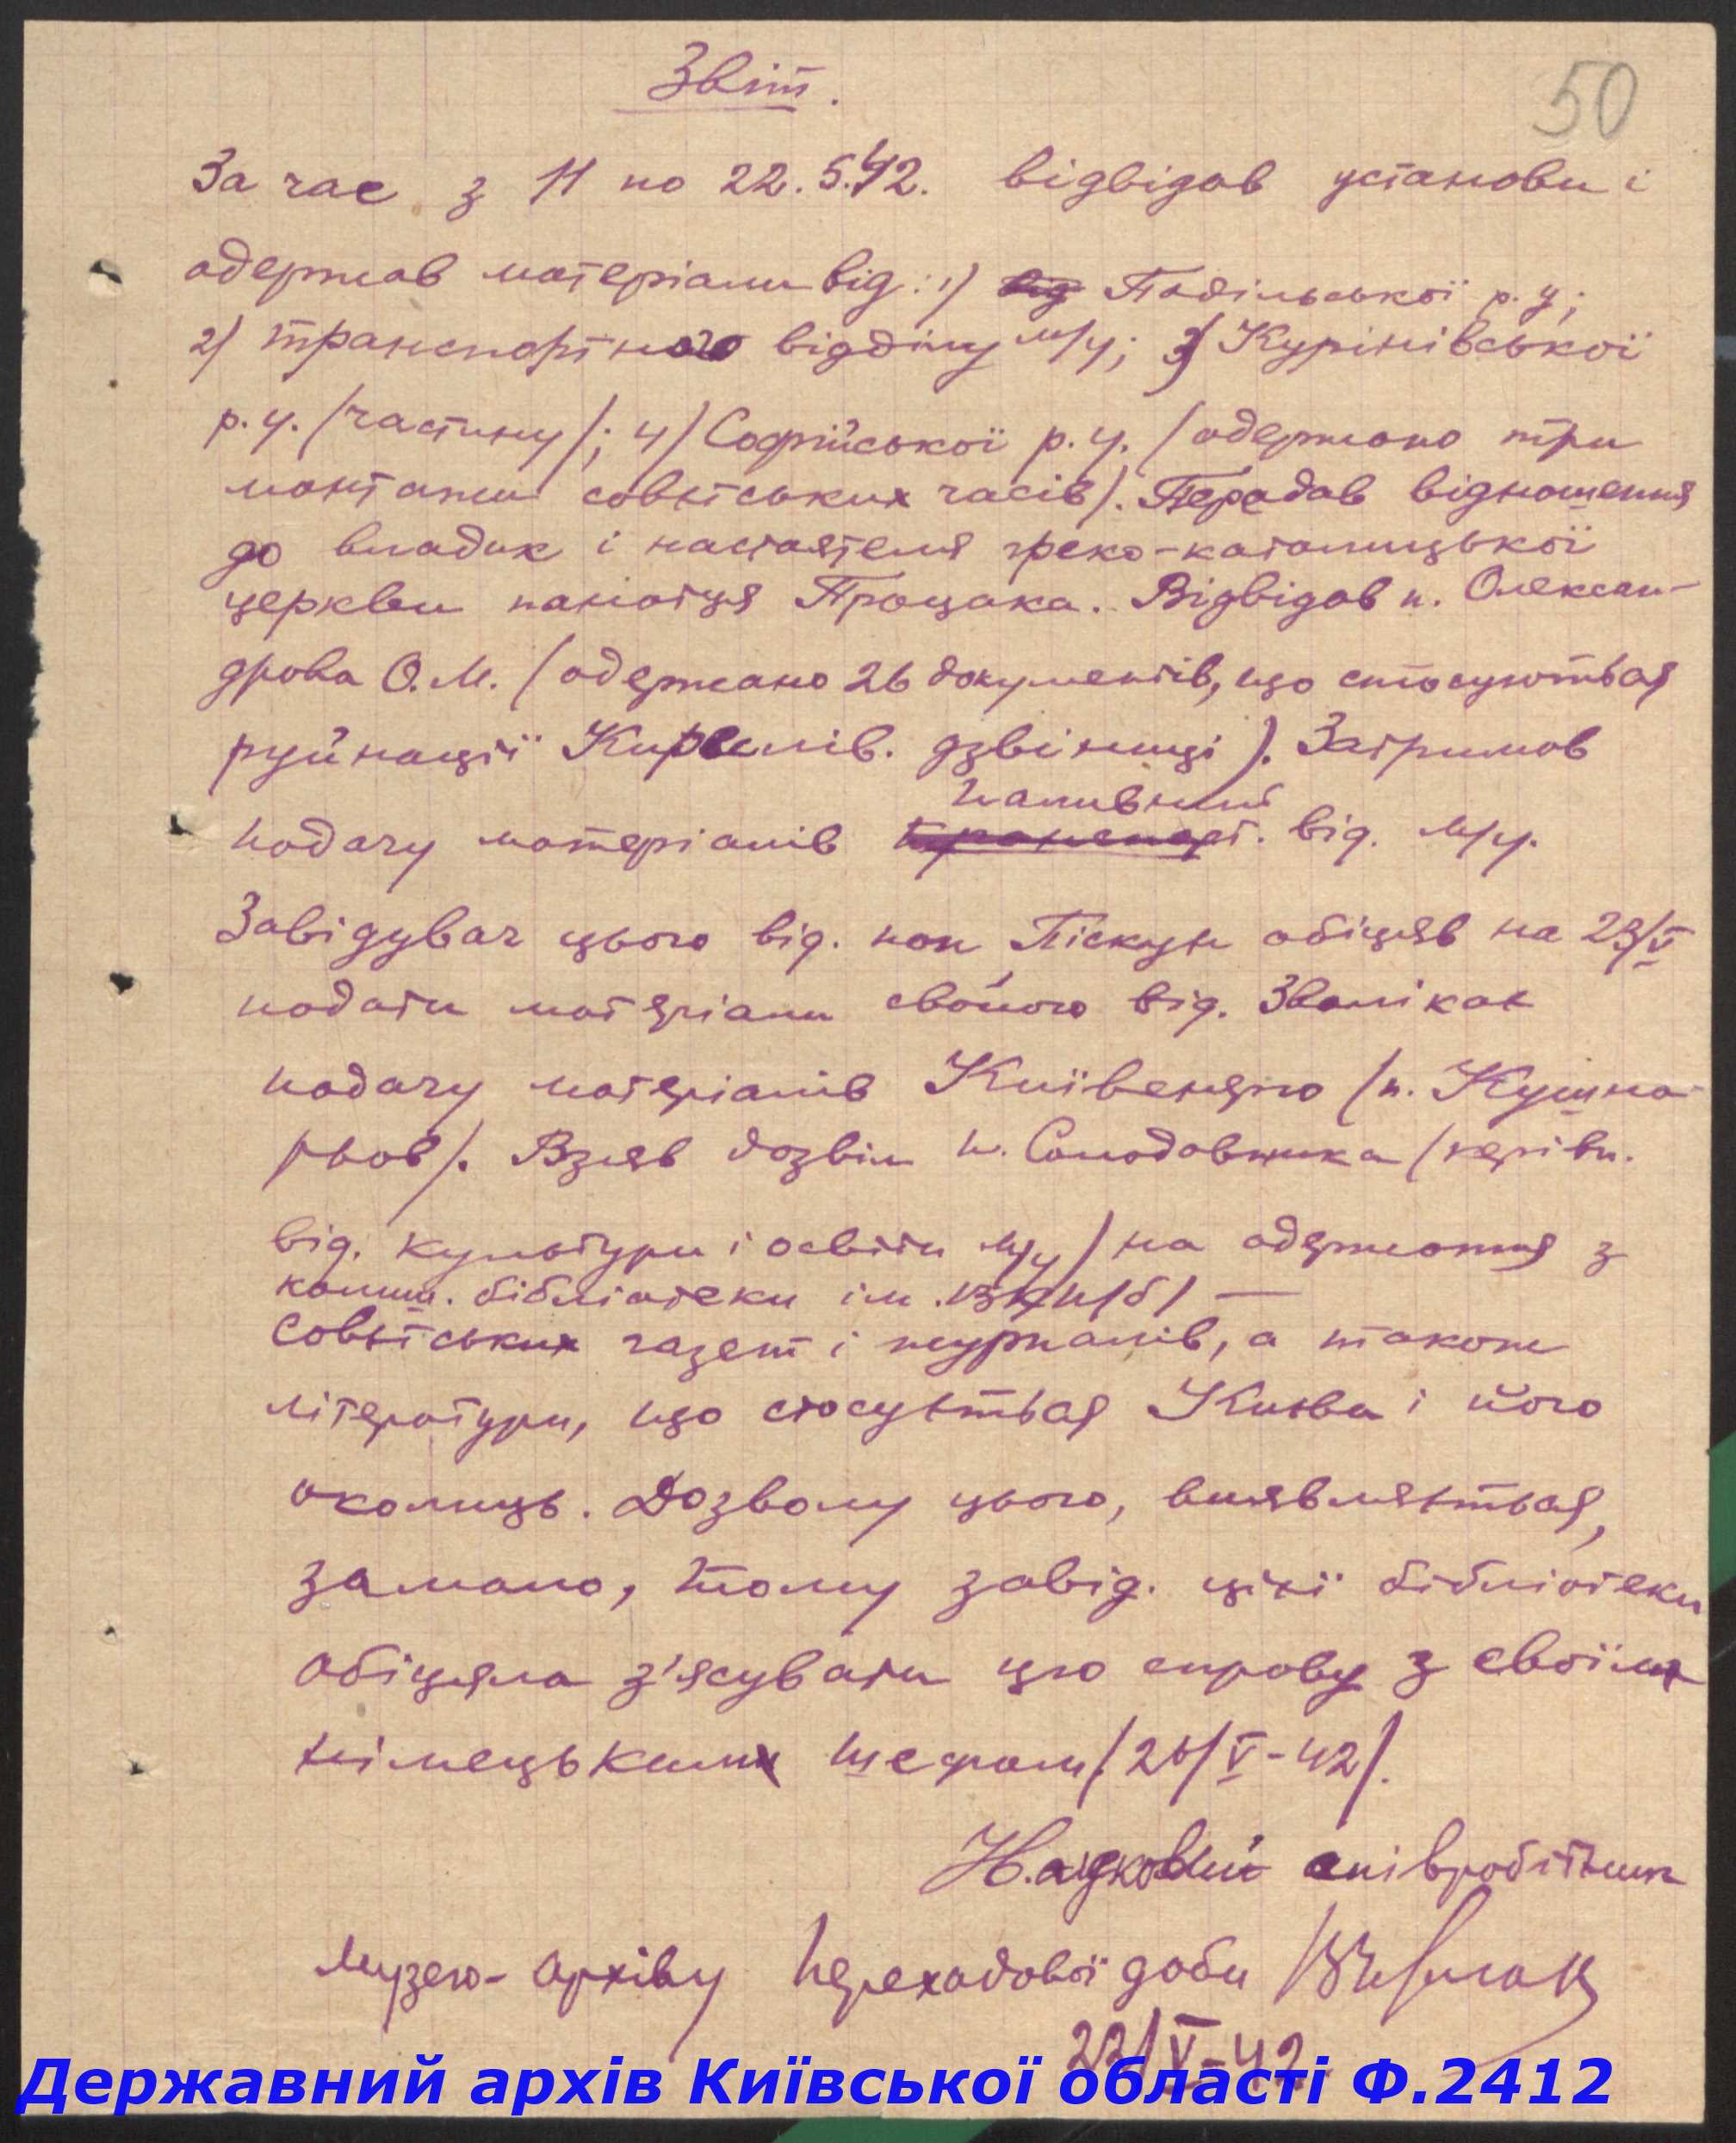 Звіт.
50
За час з 11 по 22.5.42. відвідав установи і
одержав матеріали від: 1) від Подільської р.у;
2) транспортного відділу м/у; 3) Куринівської
р.у. /частину/; 4) Софійської р.у. /одержано три
монтажи совєтських часів/. Передав відношення
до владик і настоятеля греко-католицької
церкви панотця Процака. Відвідав п. Олексан-
дрова О.М. /одержано 26 документів, що стосуються
руйнації Кирилів. дзвіниці/. Затримав
паливний
подачу матеріалів транспорт. від. м/у.
Завідувач цього від. пан Піскун обіцяв на 23/V
подати матеріали свойого від. Зволікає
подачу матеріалів Київенерго /п. Кушна-
рьов/. Взяв дозвіл п. Солодовника /керівн.
від. культури і освіти м/у/ на одержання з
колиш. бібліотеки ім. ВКП/б/ —
совєтських газет і журналів, а також
літератури, що стосується Києва і його
околиць. Дозволу цього, виявляється,
замало, тому завід. цієї бібліотеки
обіцяла з'ясувати цю справу з своїм
німецьким шефом /26/V-42/.
Науковий співробітник
Музею-Архіву Переходової доби
22/V-42
Державний архів Київської області Ф.2412